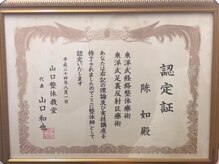 認定証
陳如殿
東洋式脊椎整体療術
東洋式足裏反射区療術
あなたは右記の理論及び実技課程を
修了されましたのでここに整体師として
認定いたします
平成二十四年八月一日
山口整体教室
代表 山口和也